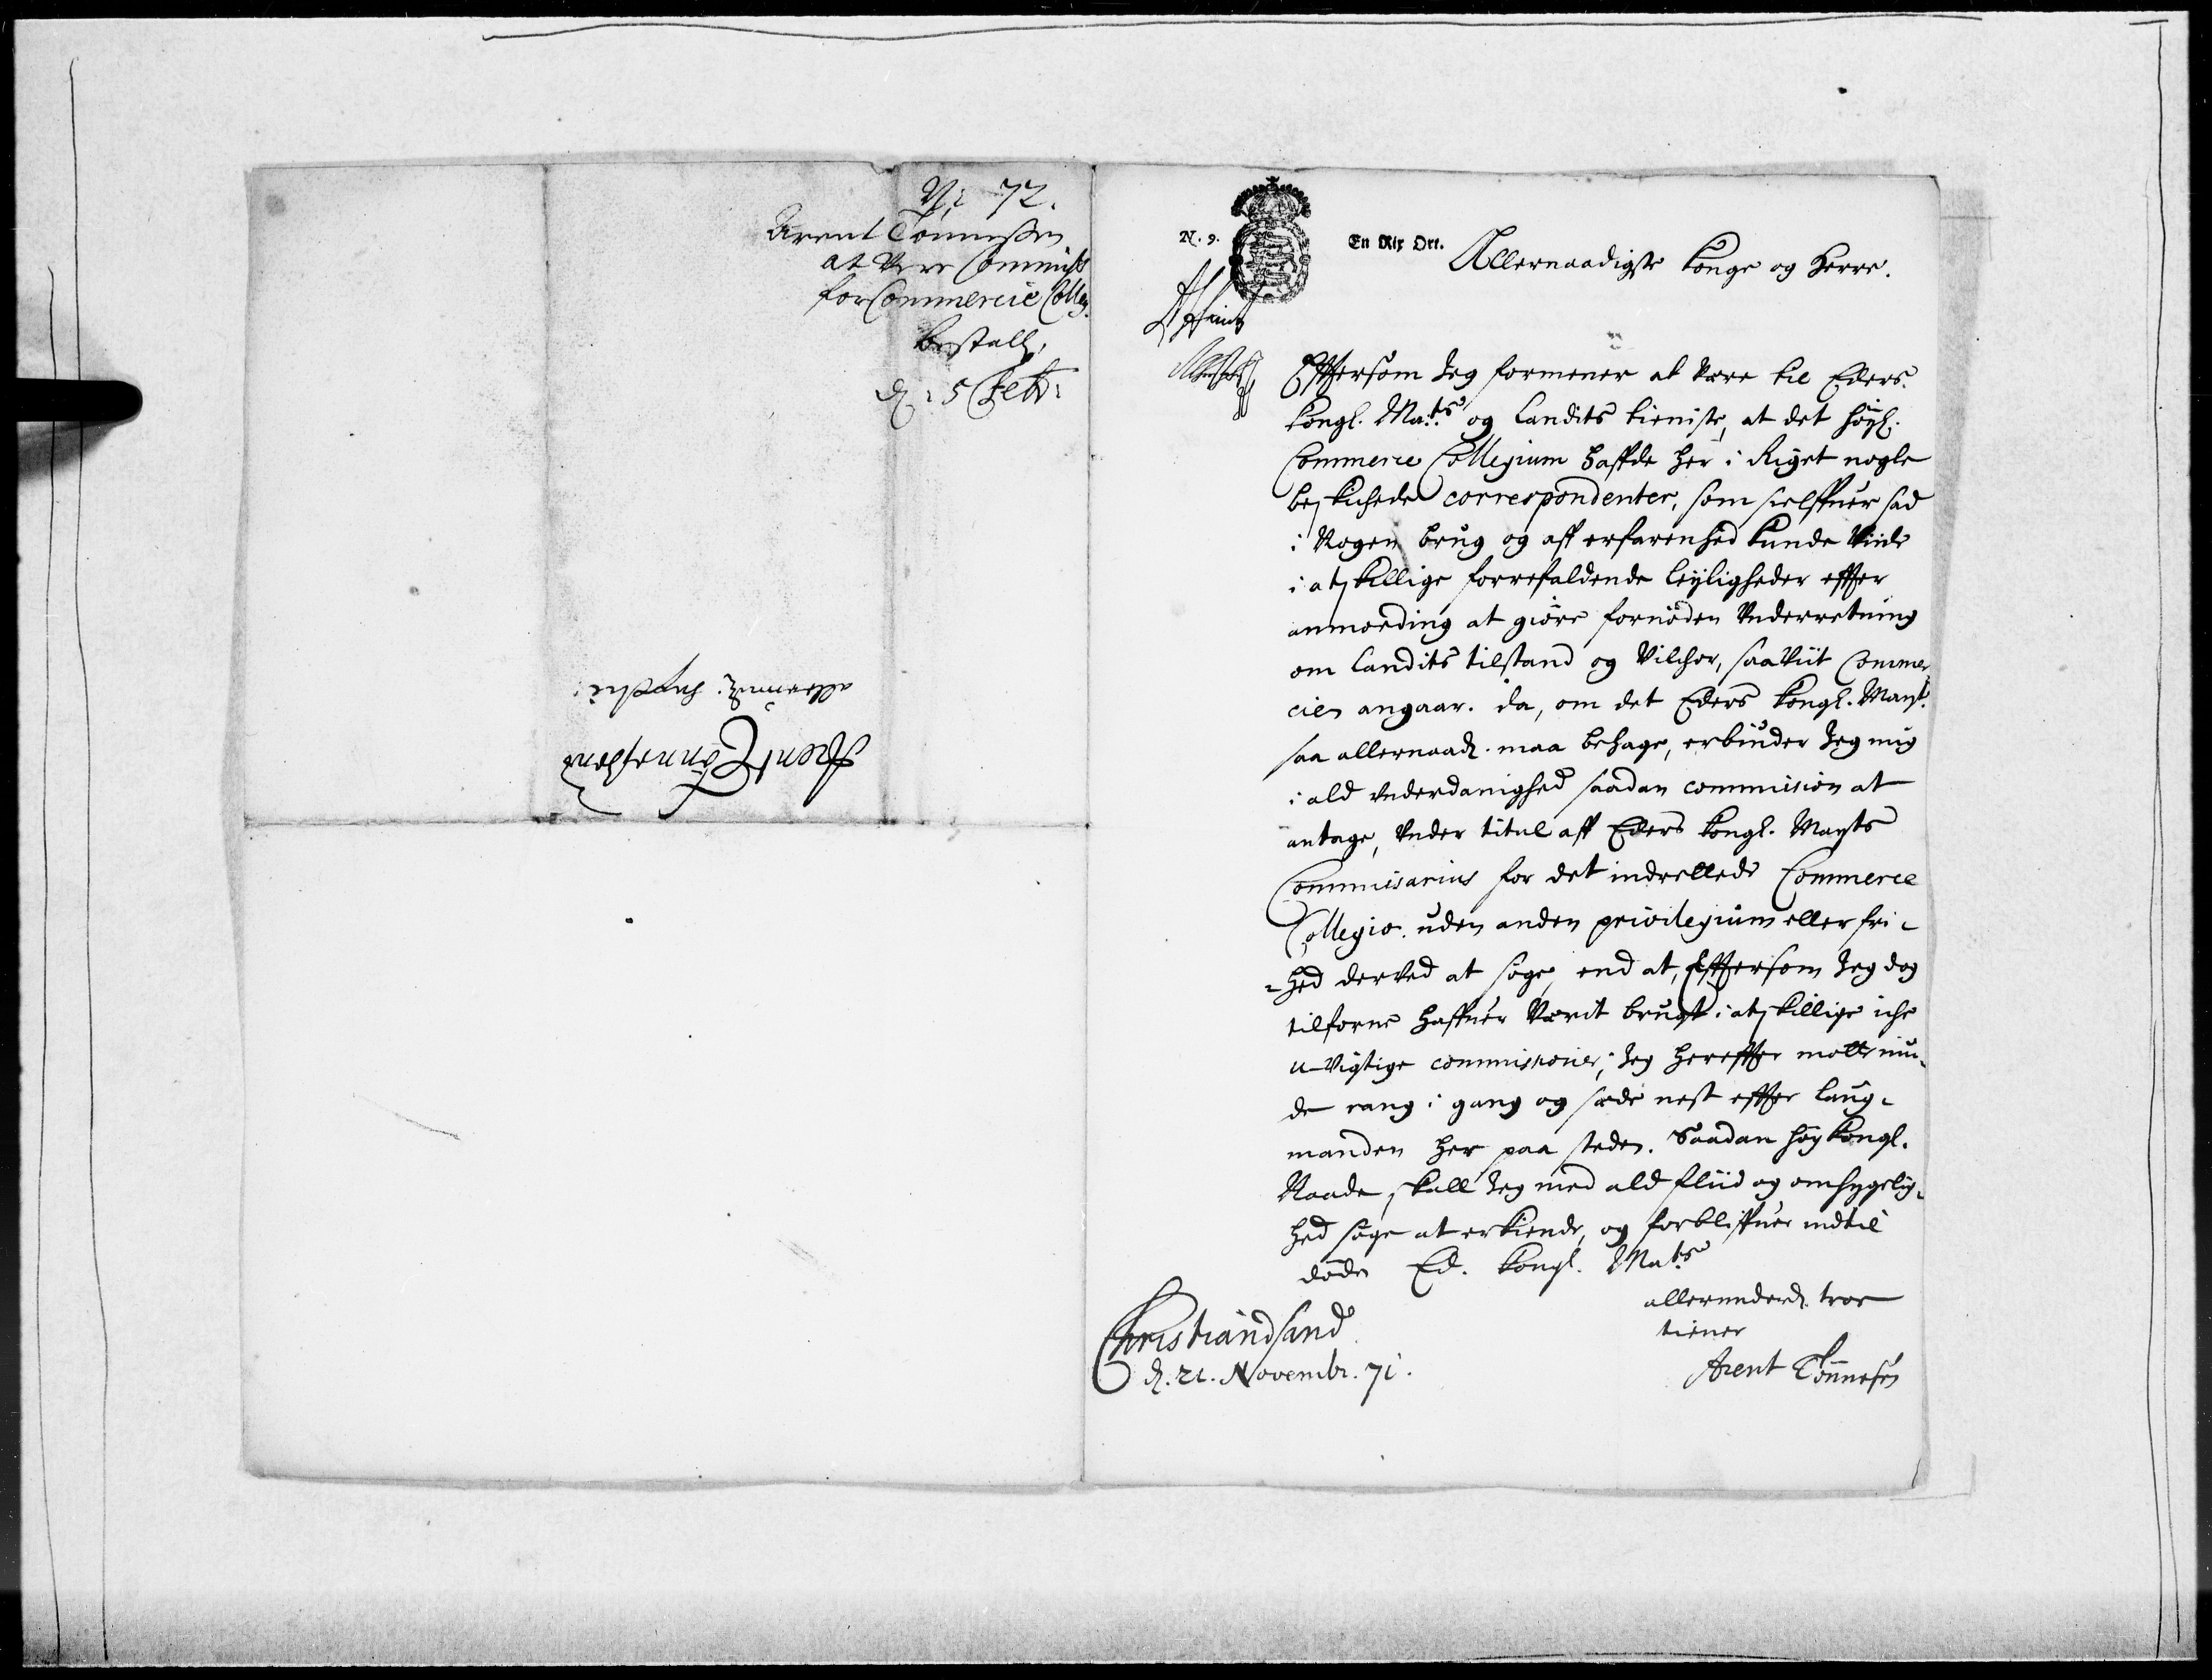 Nr 72.
Arent Tönnessen
at Være Commiss
for Commercie Colleg.
bestall.
d: 5 Feb:
Arent Tönnessøns
allerund. suppliq:
N. 9.
En Rix Ort.
Allernaadigste Konge og Herre.
Effersom Jeg formener at være til Eders
Kongl. Ma.ts og Landits tieniste, at det höyl.
Commerce Collegium haffde her i Riget nogle
beskichede correspondenter, som sielffuer sad
i Nogen brug og aff erfarenhed kunde Viide
i atskillige forrefaldende leyligheder effter
anmoeding at giöre fornöden Underretning
om Landits tilstand og Vilchor, saaViit Commer
cien angaar. da, om det Eders Kongl. Mayt.
saa allernaad. maa behage, erbiuder Jeg mig
i ald underdanighed saadan commission at
antage, Under titul aff Eders Kongl. Mayts
Commissarius for det indrettede Commerce
Collegio. uden anden privilegium eller fri-
-hed derved at söge, end at, Efftersom Jeg dog
tilforne haffuer Værit brugt i atskillige iche
u-Vigtige commissioner, Jeg hereffter motte niu-
de rang i gang og sæde nest effter Laug-
manden her paa steden. Saadan höy Kongl.
Naade, skall Jeg med ald fliid og omhygelig-
hed söge at erkiende, og forbliffuer indtil
döde Ed. Kongl. Ma.ts
allerunderd. troe
tiener
Christiandsand
d. 21. Novembr. 71.
Arent Tönnesen